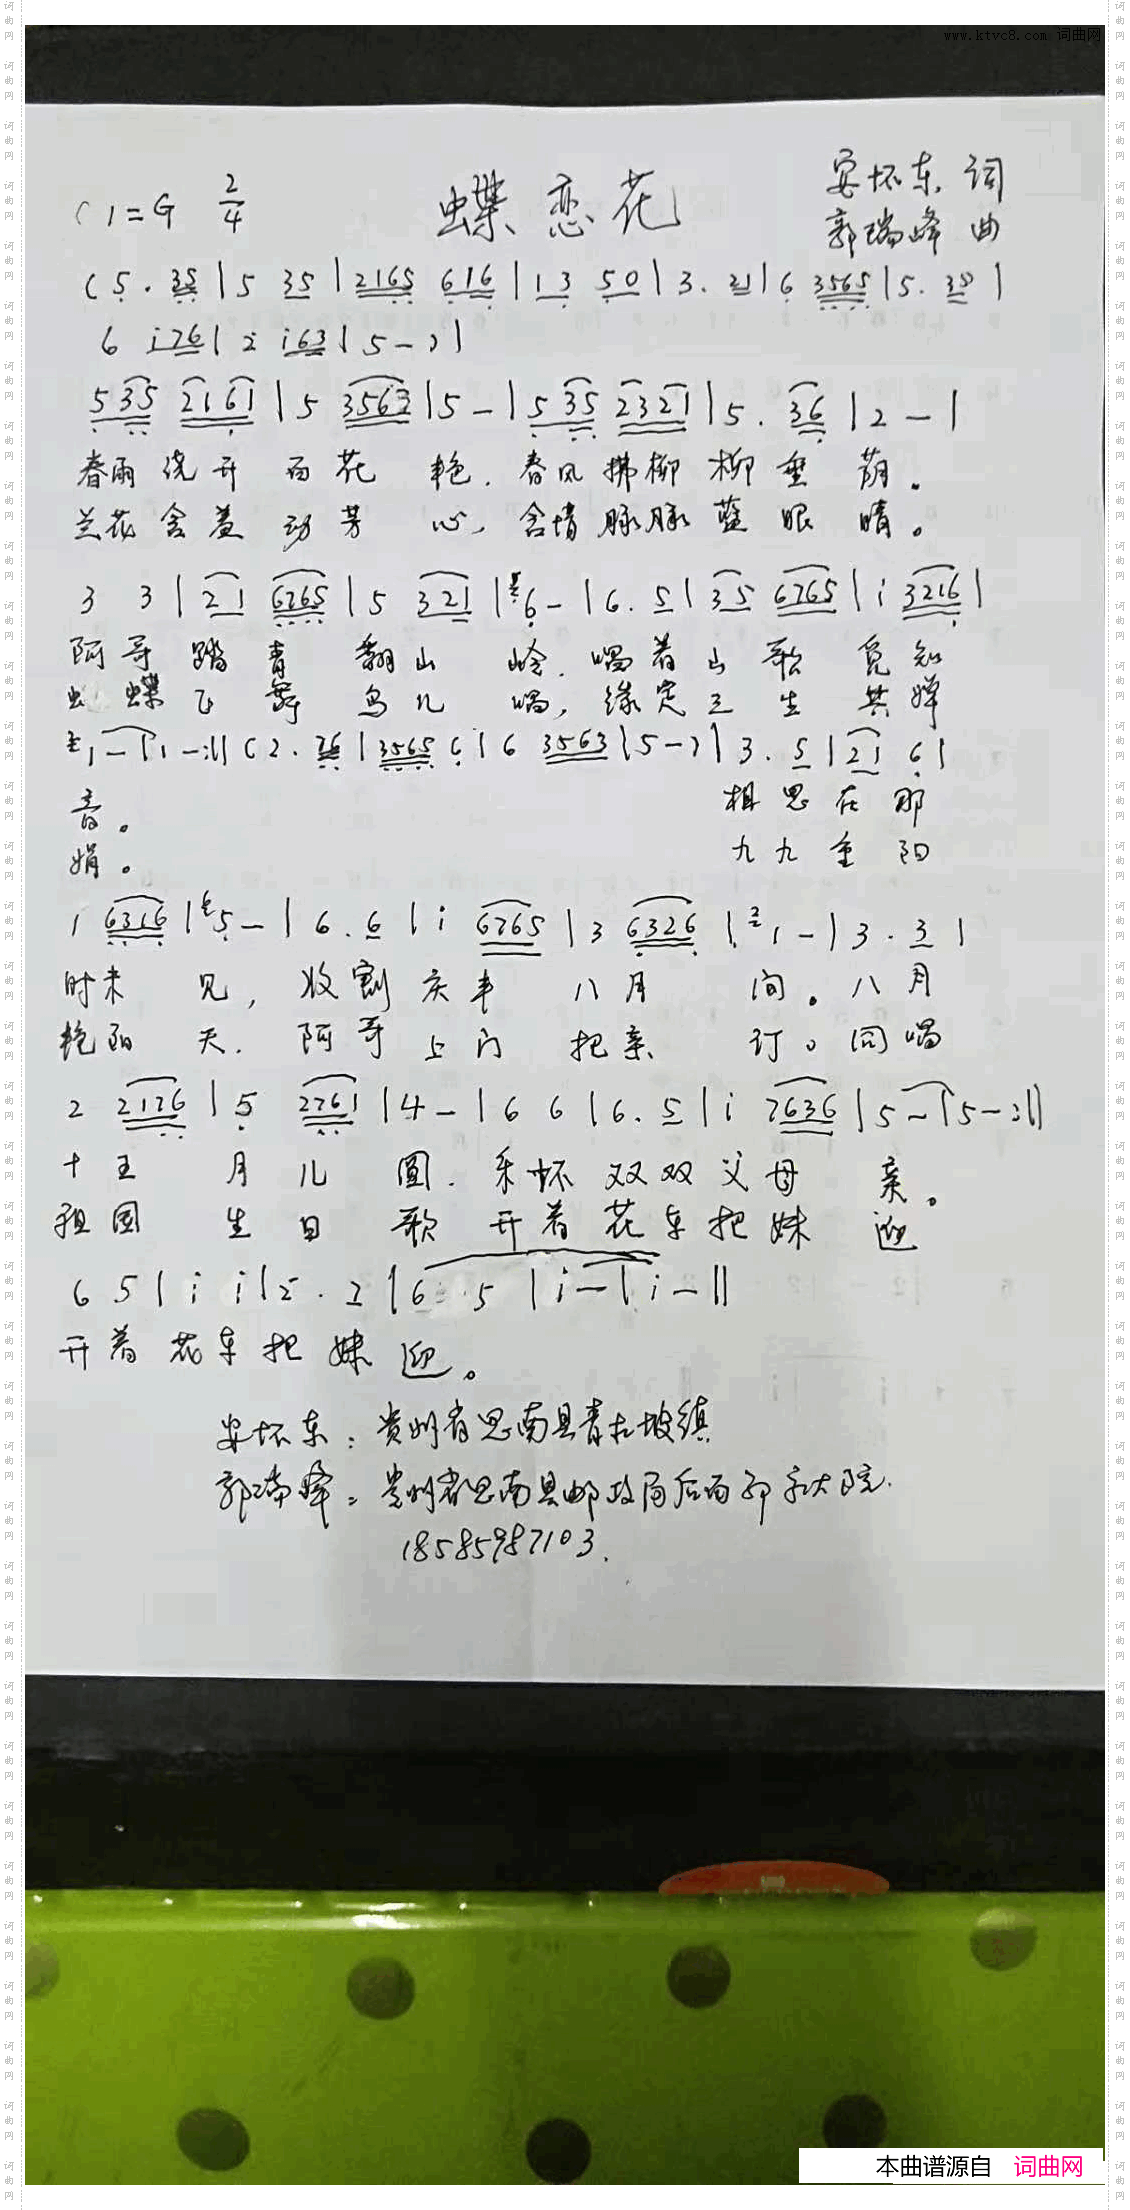 www.ktvc8.com 词曲网
1=G 2/4
蝶恋花
安怀东 词
郭瑞峰 曲
(5. 35|5 35|2165 616|13 50|3. 21|6 3565|5. 35|
6 i76|2 i63|5-)|
535 2161|5 3563|5-|535 2321|5. 36|2-|
春雨绕开百花艳.春风拂柳柳垂荫。
兰花含羞动芳心,含情脉脉蓝眼睛。
3 3|21 6765|5 321|6-|6. 5|35 6765|i 3216|
阿哥踏青翻山岭.唱着山歌觅知
蝴蝶飞舞鸟儿唱,缘定三生共婵
1-|1-:|| (2. 76|3565 6|6 3563|5-)|3. 5|21 6|
音。 相思在那
娟。 九九重阳
1 6316|5-|6. 6|i 6765|3 6326|1-|3. 3|
时未见,收割庆丰八月间。八月
艳阳天.阿哥上门把亲订。同唱
2 2176|5 2761|4-|6 6|6. 5|i 7636|5-|5-:||
十五月儿圆.乐怀双双父母亲。
祖国生日歌开着花车把妹迎
6 5|i i|2. 2|6 5|i-|i-||
开着花车把妹迎。
安怀东:贵州省思南县青杠坡镇
郭瑞峰:贵州省思南县邮政局后面大院.
18585987103.
本曲谱源自 词曲网